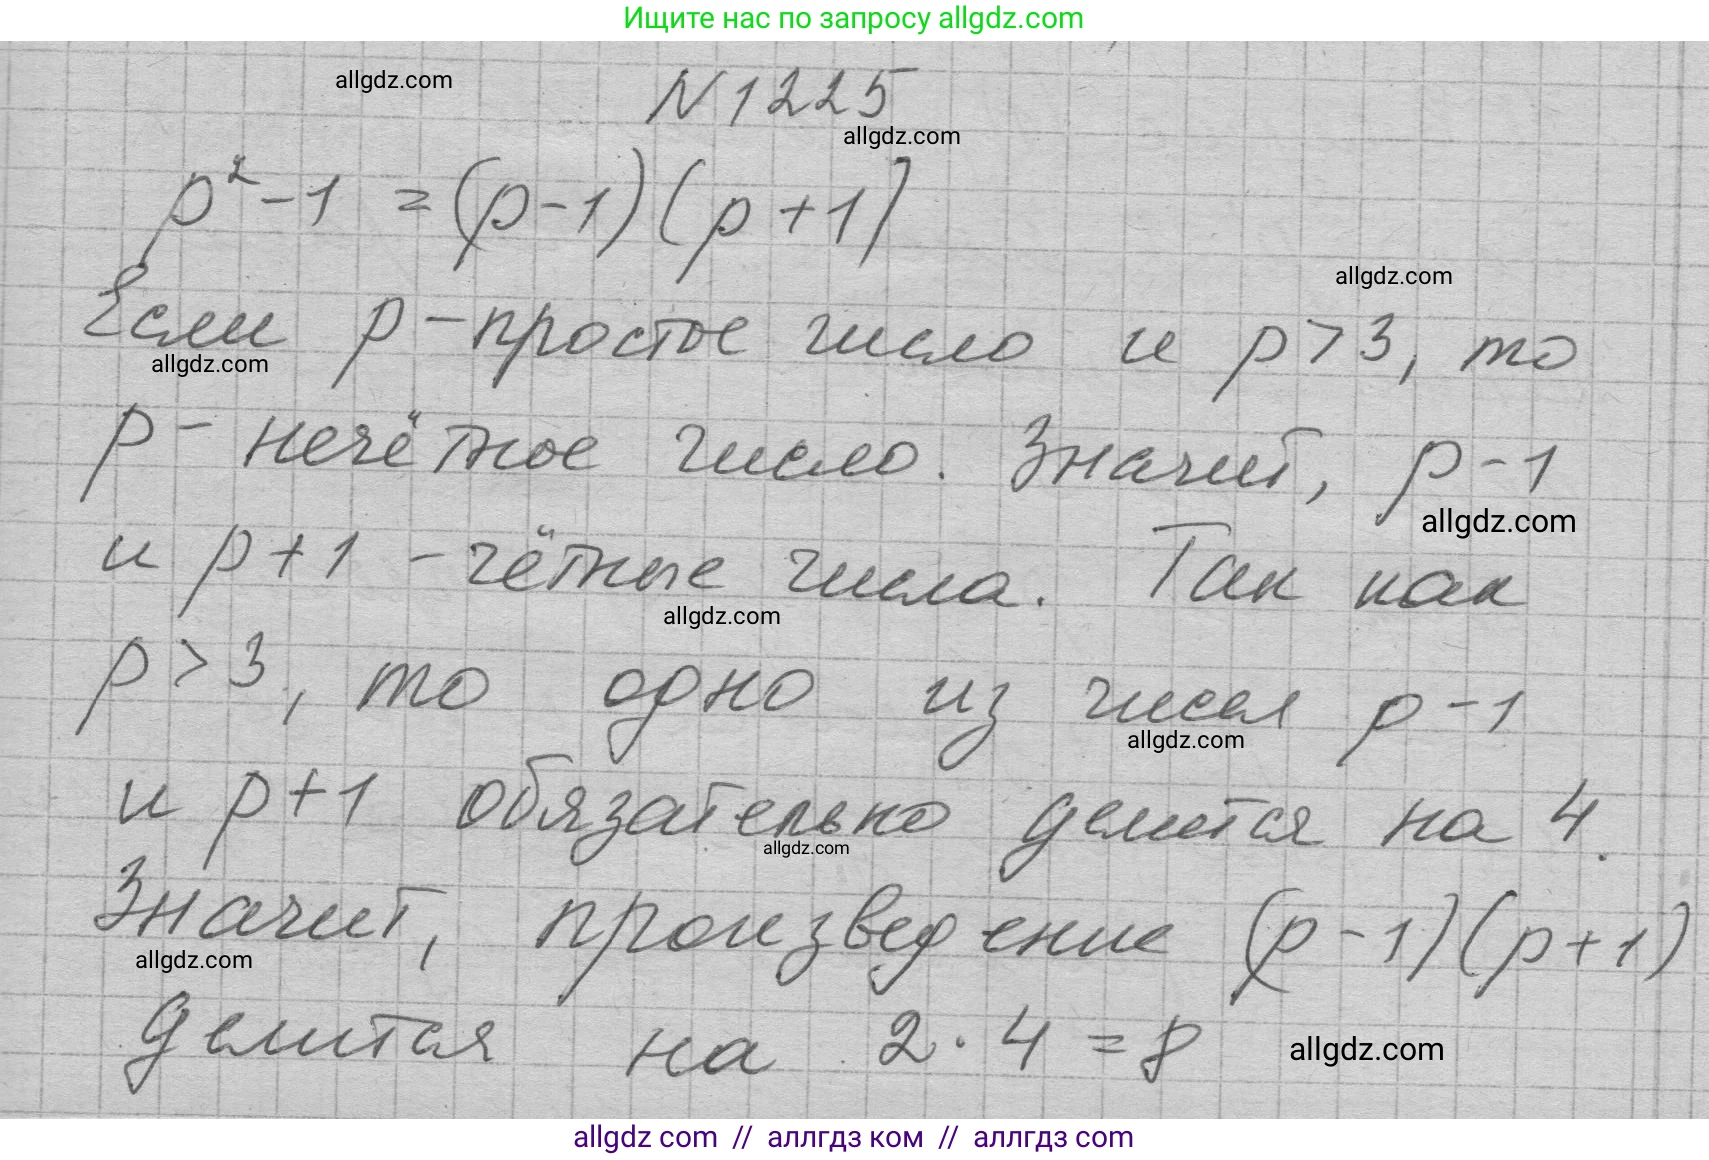 Ищите нас по запросу allgdz.com
allgdz.com
N1225
allgdz.com
p²-1 = (p-1)(p+1)
allgdz.com
Если p - простое число и p>3, то
allgdz.com
p - нечётное число. Значит, p-1
allgdz.com
и p+1 - чётные числа. Так как
allgdz.com
p>3, то одно из чисел p-1
allgdz.com
и p+1 обязательно делится на 4.
allgdz.com
Значит, произведение (p-1)(p+1)
allgdz.com
делится на 2·4=8
allgdz.com
allgdz com // аллгдз ком // аллгдз com